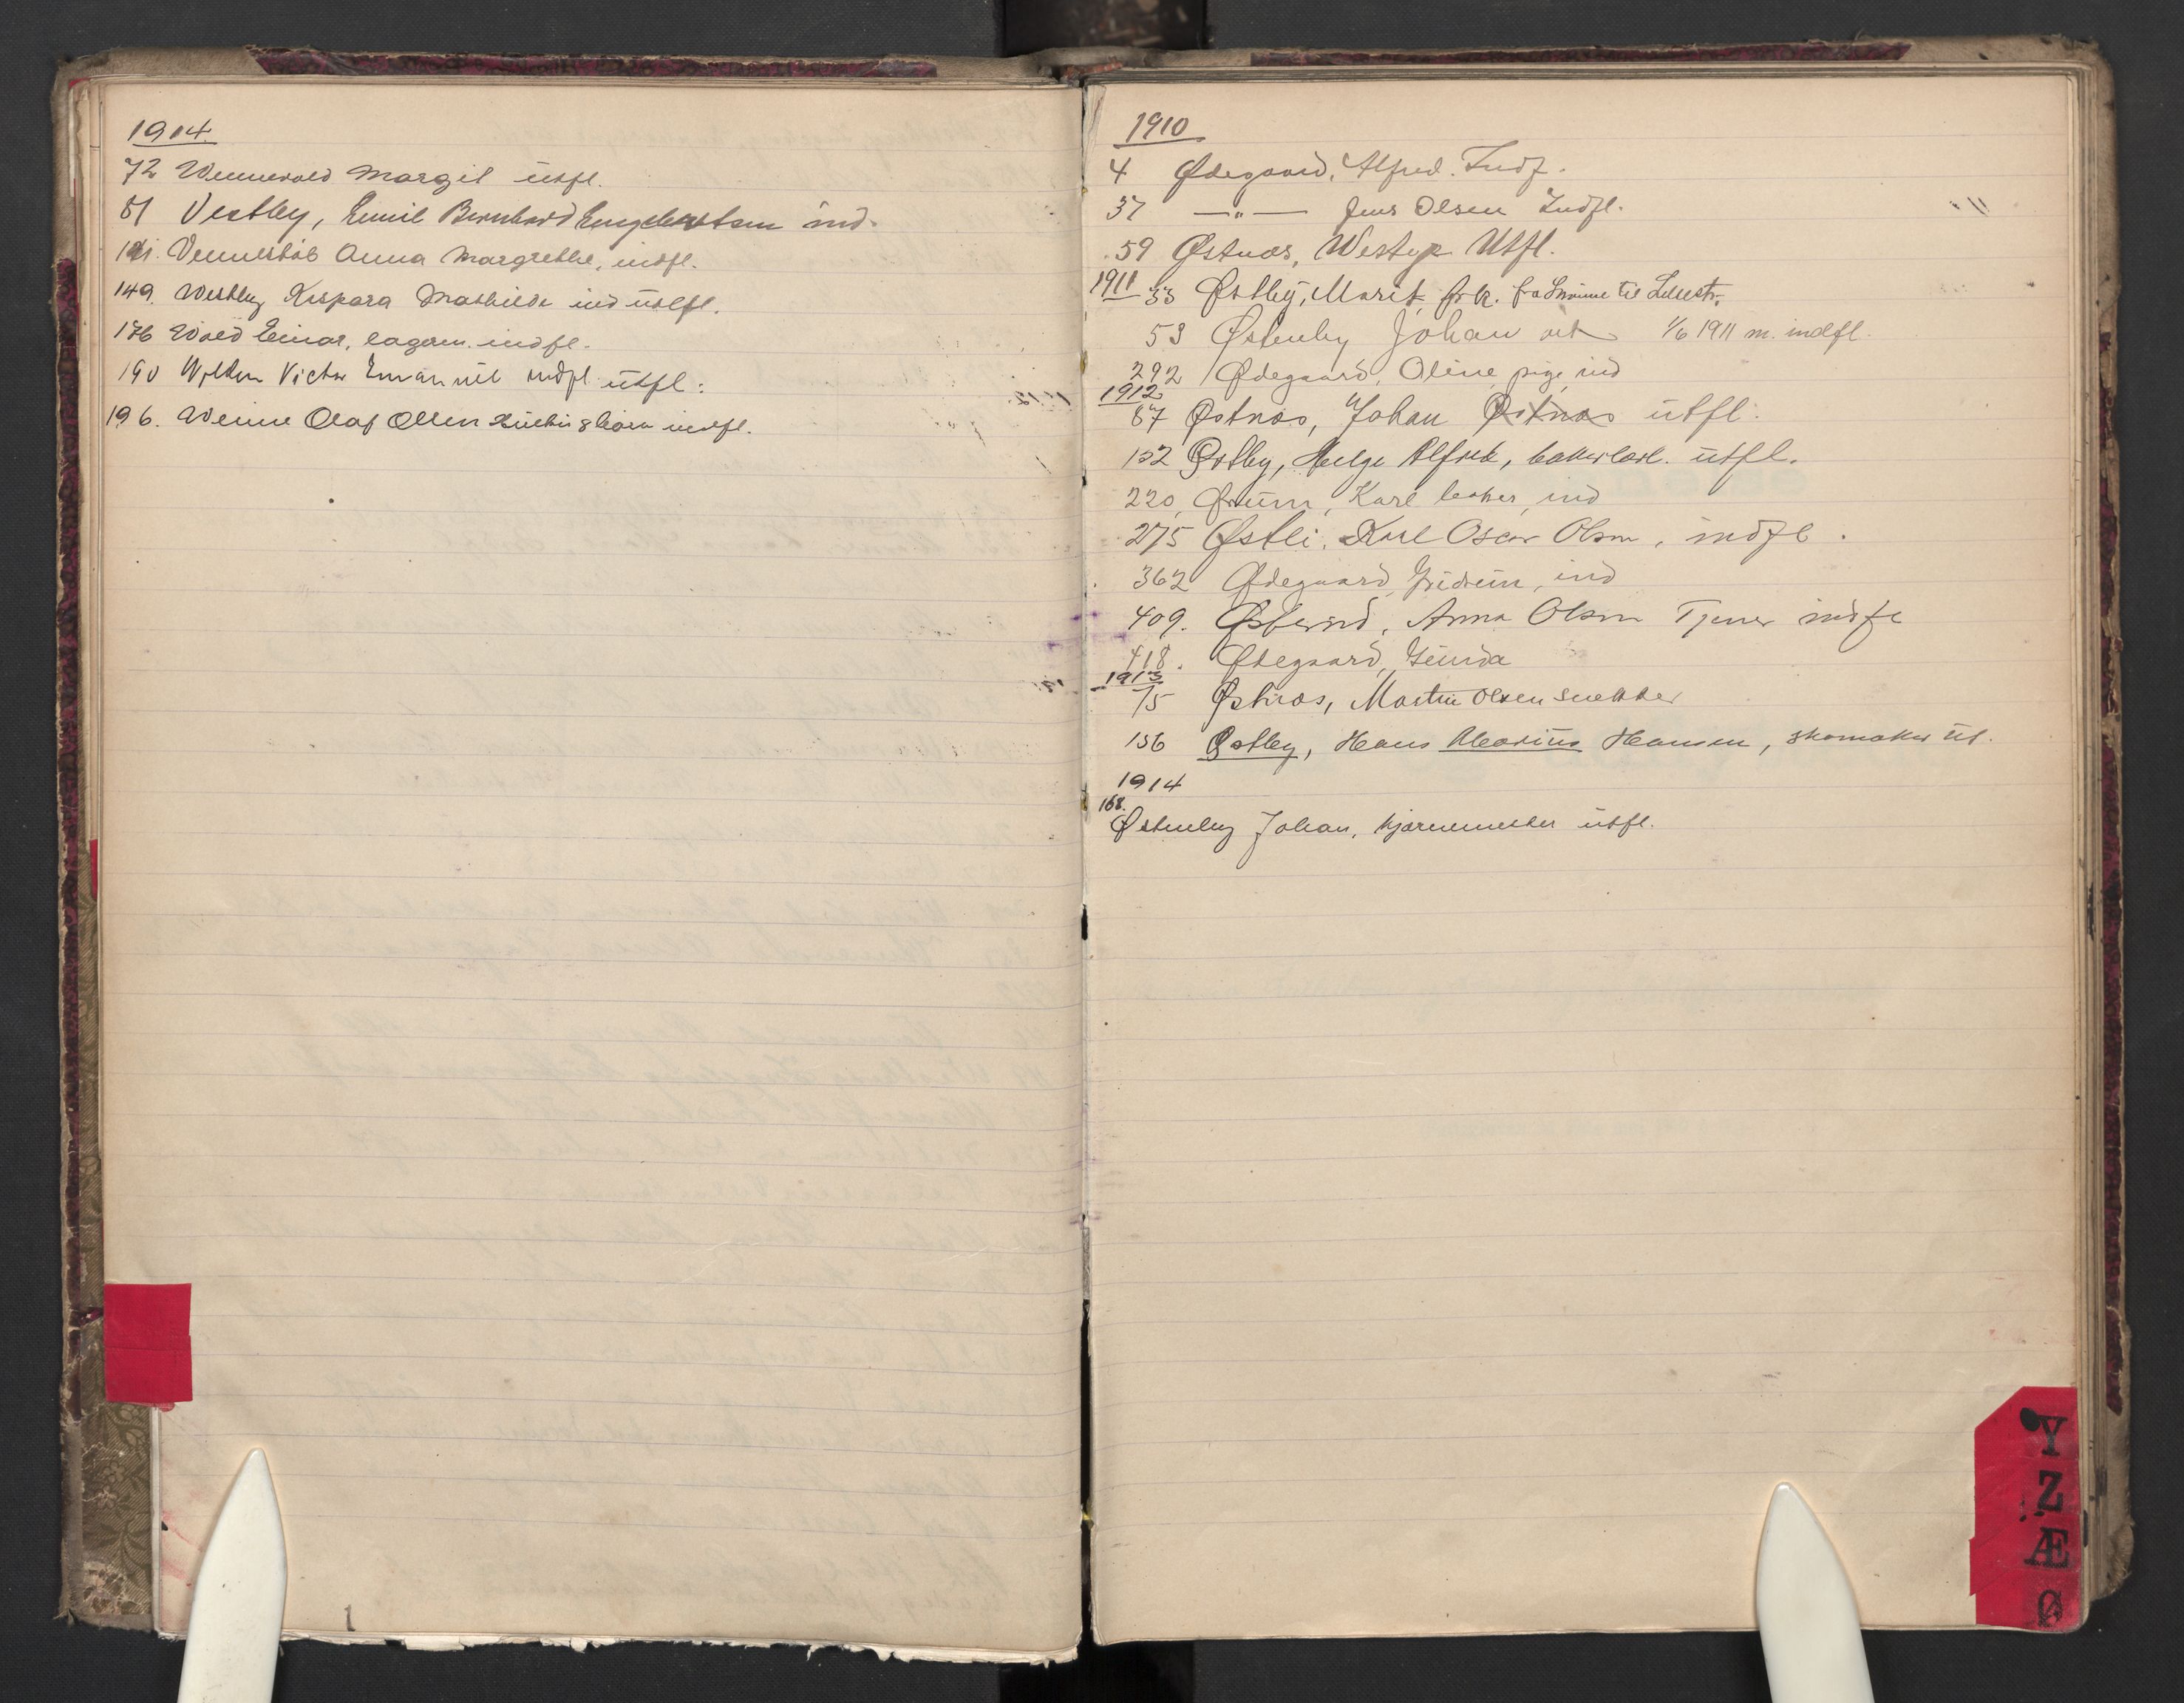 1914.
72 Wennevold Margit utfl.
81 Vestby, Emil Bernhard Engebretsen ind.
Anna Margrethe, indfl.
149. Westby Kaspara Mathilde ind utfl.
176 Wold Einar, lagerm. indfl.
190 Victor Emanuel indfl utfl.
196. Olaf Olsen indfl.
1
1910
4 Ødegaard, Alfred. Indf.
37 —"— Jens Olsen Indfl.
59 Østnæs, Utfl.
1911
33 Østby, Marit frk. fra til Lillestr.
53 Østenby Johan 1/6 1911 m. indfl.
292 Ødegaard, Oline, pige, ind
1912
87 Østnæs, Johan Østnæs utfl.
152 Østby, Helge Alfred, bakerlærl. utfl.
220, Karl baker, ind
275 Østli, Karl Oscar Olsen, indfl.
362 Ødegaard, ind
409. Anna Olsen Tjener indfl
418. Ødegaard, Gunda
1913
75 Østnæs, Martin Olsen snekker
156 Østby, Hans Alexius Hansen, skomaker ut.
1914
168.
Østenby Johan, utfl.
Y
Z
Æ
Ø